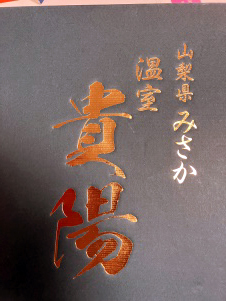 山梨県みさか
温室
貴陽